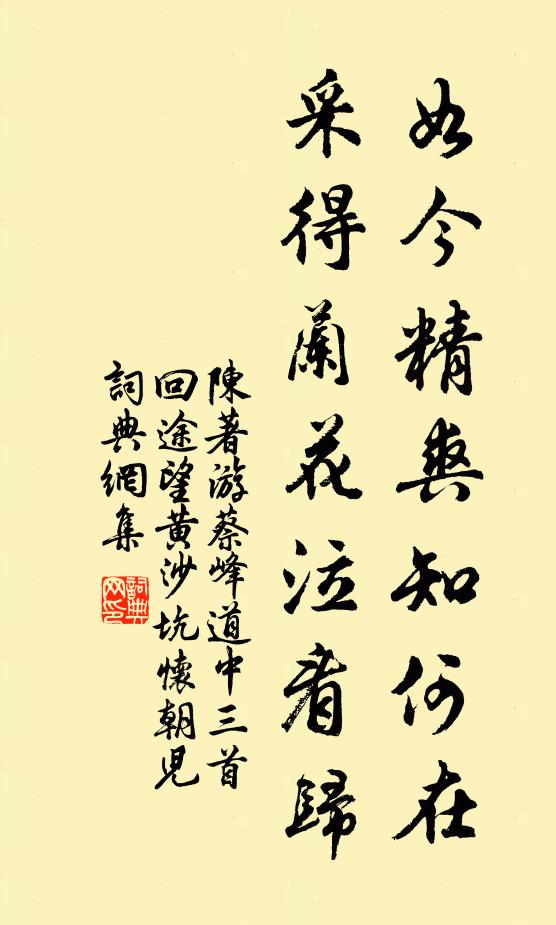 如今精爽知何在
采得蘭花泣看歸
陳著游蔡峰道中三首
回途望黃沙坑懷朝兒
詞典網集
詞典網印